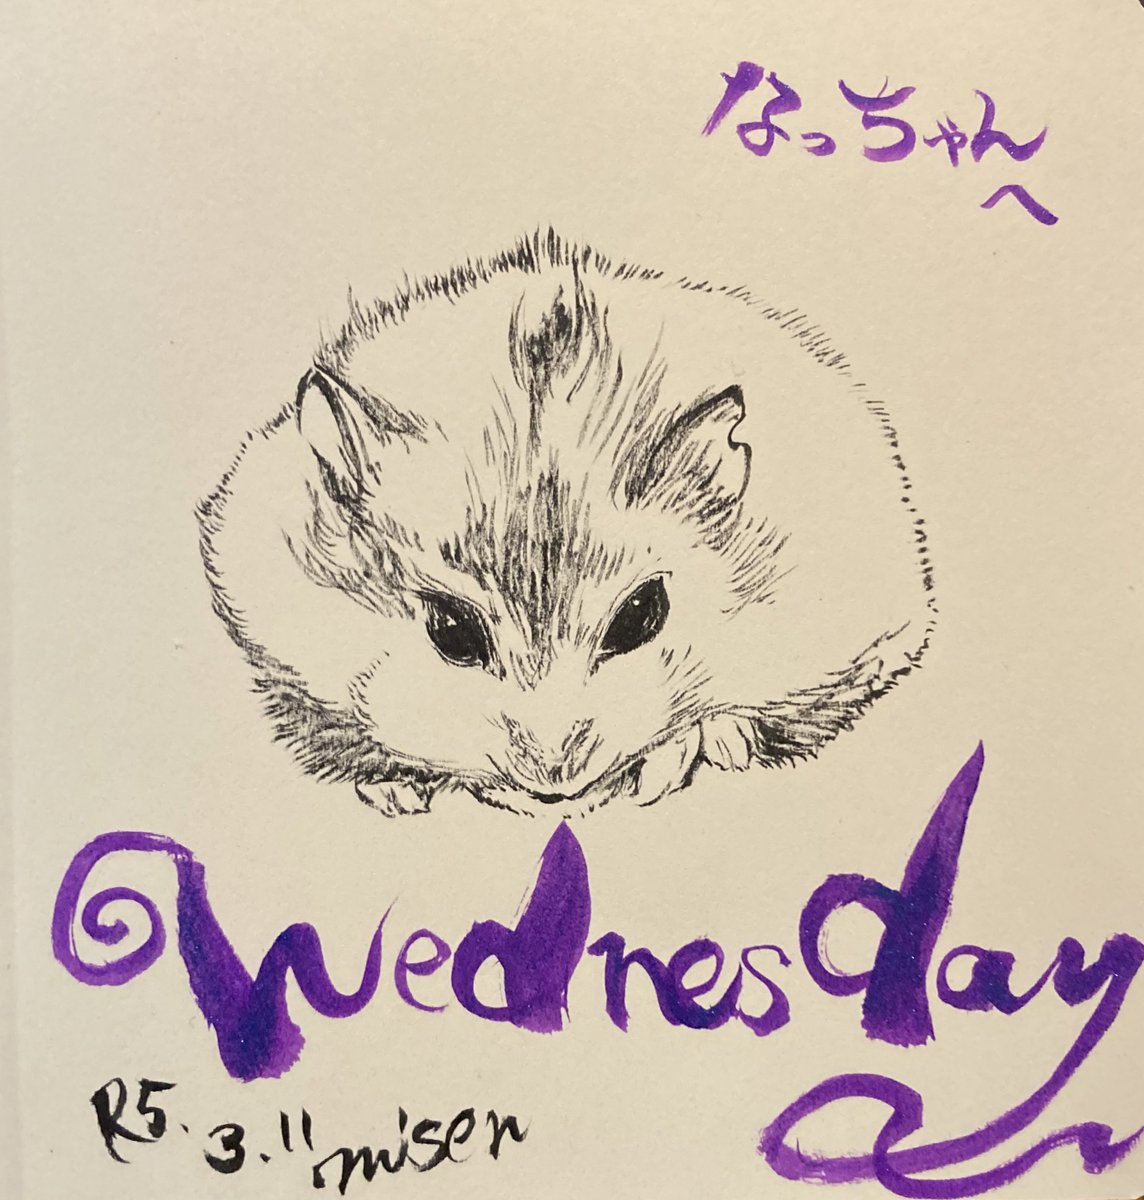 なっちゃん
へ
Wednesday
R5.3.11 misen